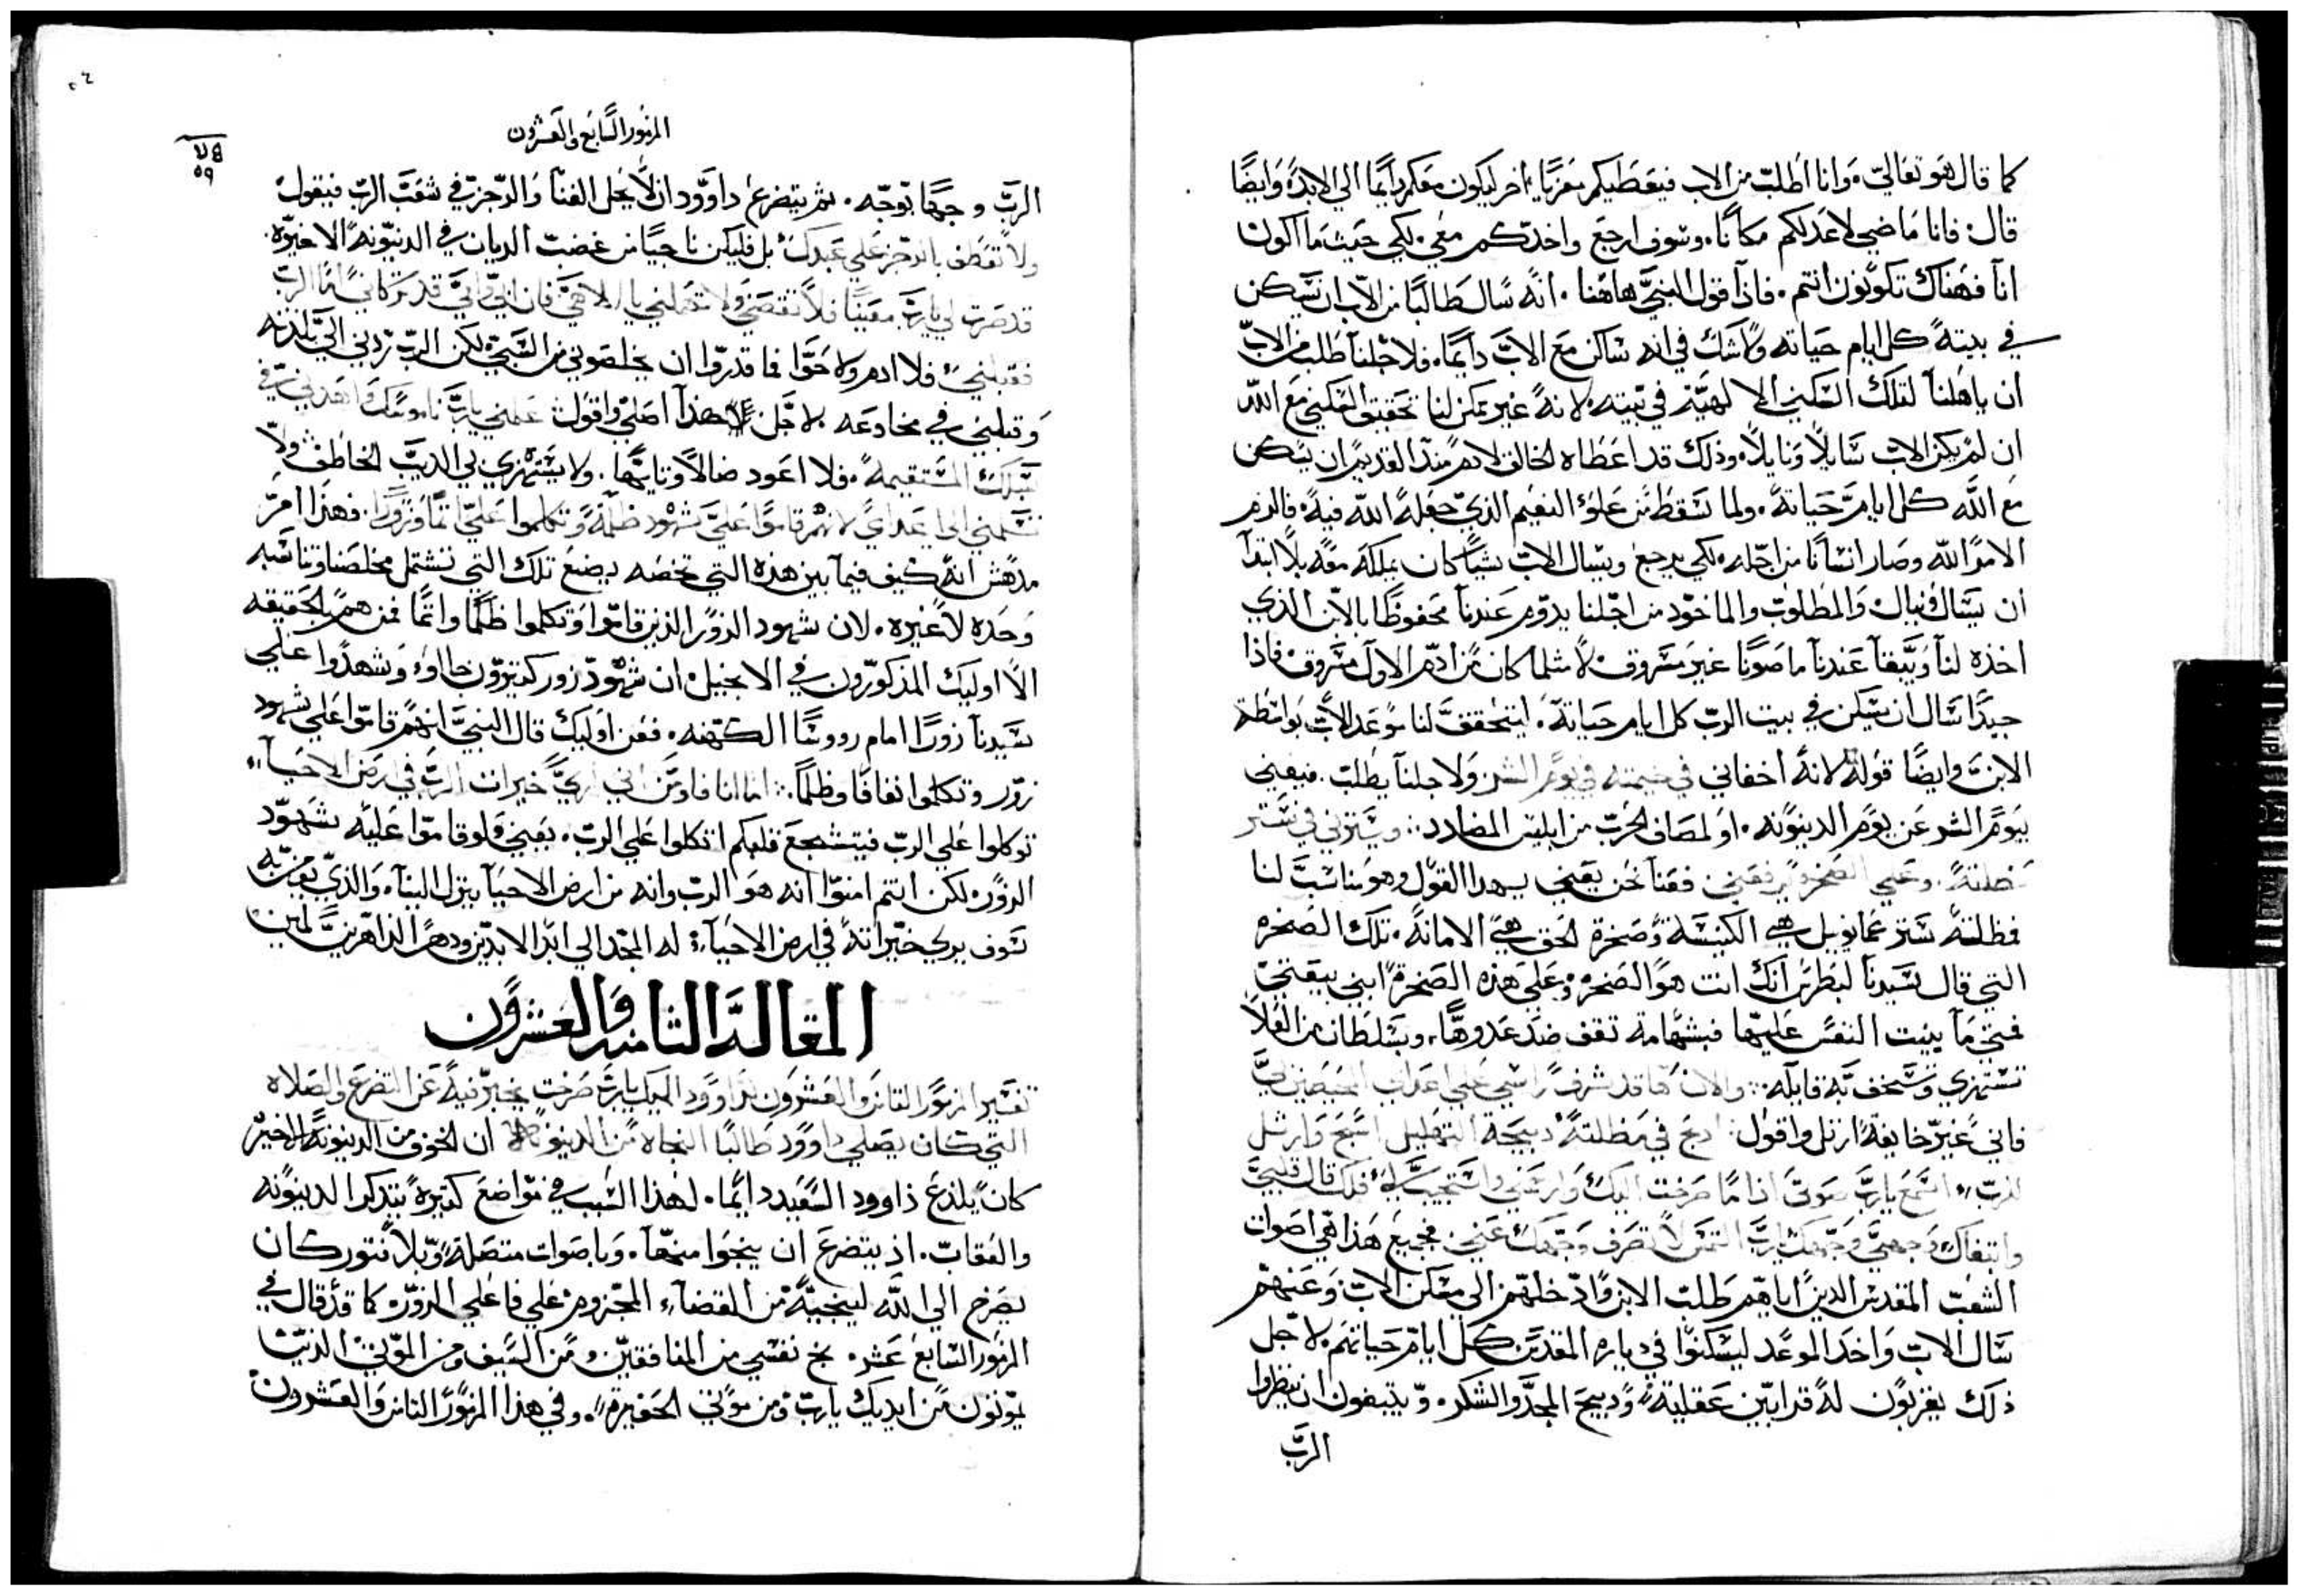 كما قال هو تعالي. وانا اطلب من الاب فيعطيكم معزيًا اخر ليكون معكم دايمًا الي الابد. وايضًا
قال: فانا ماضي لاعد لكم مكانًا. وسوف ارجع واخدكم معي. لكي حيث ما اكون
انا فهناك تكونون انتم. فاذًا قول النبي هاهنا. انه سال طالبًا من الاب ان يسكن
في بيته كل ايام حياته ولا شك في انه ساكن مع الاب دايمًا. فلاجلنا طلب من الاب
ان ياهلنا لتلك السكني الالهيه في بيته. لانه غير ممكن لنا تحقيق السكني مع الله
ان لم يكن الابن سايلًا ونايلًا. وذلك قد اعطاه الخالق لادم منذ القديم ان يسكن
مع الله كل ايام حياته. ولما سقط من علو النعيم الذي جعله الله فيه. فالزم
الامر الله وصار انسانًا من اجله. لكي يرجع ويسال الاب شيًا كان يملكه معه بلا ابتدا
ان يسال فينال. والمطلوب والماخود من اجلنا يدوم عندنا محفوظًا بالابن الذي
اخذه لنا ويبقا عندنا ماصونًا غير مسروق. لا مثلما كان من ادم الاول مسروق. فاذا
جيدًا سال ان يسكن في بيت الرب كل ايام حياته. ليتحقق لنا موعد الاب بواسطة
الابن وايضًا قوله لانه اخفاني في خيمته في يوم الشر ولاجلنا يطلب. فيعني
بيوم الشر عن يوم الدينونه. او لمصاف الحرب من ابليس المضادد: وسترني في ستر
مظلته. وعلي الصخره رفعني. فعنا نحن يعني بهدا القول وهو مناسب لنا
فظلته ستر عمانويل هي الكنيسه وصخرة الحق هي الامانه. تلك الصخره
التي قال سيدنا لبطرس انك انت هو الصخره وعلي هذه الصخرة ابني بيعتي
فمتي ما بنيت النفس عليها فبشهامة تقف ضد عدوها. وبسلطان من العلا
تستهزي وتسخف به قايله: والان ها قد شرف راسي علي اعداي المحيطين بي
فاني غير خايفه ارتل واقول: ادبح في مظلته دبيحة التهليل اسبح وارتل
للرب. استمع يارب صوتي اذا ما صرخت اليك وارحمني واستجيب لي. فلك قال قلبي
وابتغاك وجهي وجهك يارب التمس لا تصرف وجهك عني. فجميع هذا هي اصوات
الشعب المقدس الدين اياهم طلب الابن وادخلهم الي مسكن الاب وعنهم
سال الاب واخد الموعد ليسكنوا في دياره المقدس كل ايام حياتهم. لاجل
ذلك يقربون له قرابين عقليه ودبيح المجد والشكر. ويتبعون ان ينظروا
الرب
المزمور السابع والعشرون
٥٩
الرب وجهًا بوجه. ثم يتضرع داوود ان لا يحل الفنا والرجز في شعب الرب فيقول
ولا تعطف بالرجز علي عبدك. بل فليكن ناجيًا من غضب الديان في الدينونه الاخيره.
قد صرت لي يارب معينًا فلا تقصني ولا تهملني يا الاهي فان ابي وامي قد تركاني اما الرب
فقبلني. فلا ادم ولا حوا فما قدروا ان يخلصوني من السبي. لكن الرب ردني الي
وقبلني في مخادعه. لاجل هذا اصلي واقول: علمني يارب ناموسك واهدني في
سبلك المستقيمه. فلا اعود ضالًا وتايهًا. ولا يستهزي بي الديب الخاطف ولا
تسلمني الي اعداي لانهم قاموا علي شهود ظلمه وتكلموا علي اثمًا وزورًا. فهذا امر
مدهش انه كيف فيما بين هذه التي تخصه يضع تلك التي تشتمل مخلصنا وتناسبه
وحده لا غيره. لان شهود الزور الذين قاموا وتكلموا ظلمًا واثمًا فمن هم بالحقيقه
الا اوليك المذكورون في الانجيل. ان شهود زور كتيرون جااوا. وشهدوا علي
سيدنا زورًا امام رووسا الكهنه. فعن اوليك قال النبي انهم قاموا علي شهود
زور وتكلموا نفاقًا وظلمًا: اما انا فاومن اني اري خيرات الرب في ارض الاحيا.
توكلوا علي الرب فيتشجع قلبكم اتكلوا علي الرب. يعني ولو قاموا عليه شهود
الزور. لكن انتم امنوا انه هو الرب وانه من ارض الاحيا ينزل الينا. والذي يومن به
سوف يري خيراته في ارض الاحيا: له المجد الي ابد الابدين ودهر الداهرين امين
المقالة الثامنه والعشرون
تفسير المزمور الثامن والعشرون لداوود اليك يارب صرخت يخبر فيه عن التضرع والصلاه
التي كان يصلي داوود طالبًا النجاه من الدينونه ان الخوف من الدينونه الاخيره
كان يلذع داوود السعيد دايمًا. لهذا السبب في مواضع كتيره يتدكر الدينونه
والعقاب. اذ يتضرع ان ينجوا منها. وباصوات متصله وبلا فتور كان
يصرخ الي الله لينجيه من القضا المجزوم علي فاعلي الزور. كما قد قال في
المزمور السابع عشر. نج نفسي من المنافقين ومن السيف ومن الموتي الذين
يموتون من ايديك يارب ومن موتي الحفيره. وفي هذا المزمور الثامن والعشرون